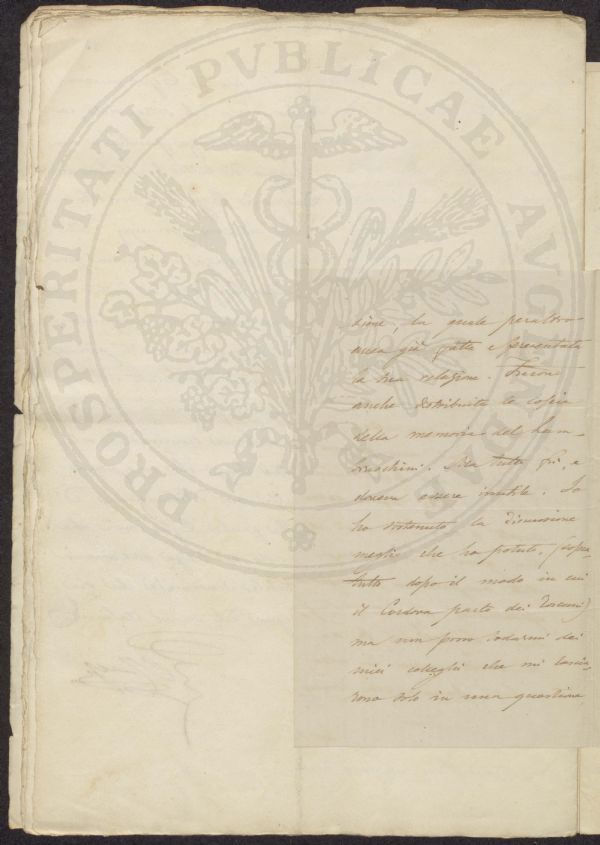 PROSPERITATI PVBLICAE AVGENDAE
sione, la quale peraltro
aveva già fatta e presentata
la sua relazione. Furono
anche distribuite le copie
della memoria del Lam-
bruschini. Ma tutto fù, e
doveva essere inutile. Io
ho sostenuto la discussione
meglio che ho potuto, (sopra-
tutto dopo il modo in cui
il Cordova parlò dei Toscani)
ma non posso lodarmi dei
miei colleghi che mi lascia-
rono solo in una questione